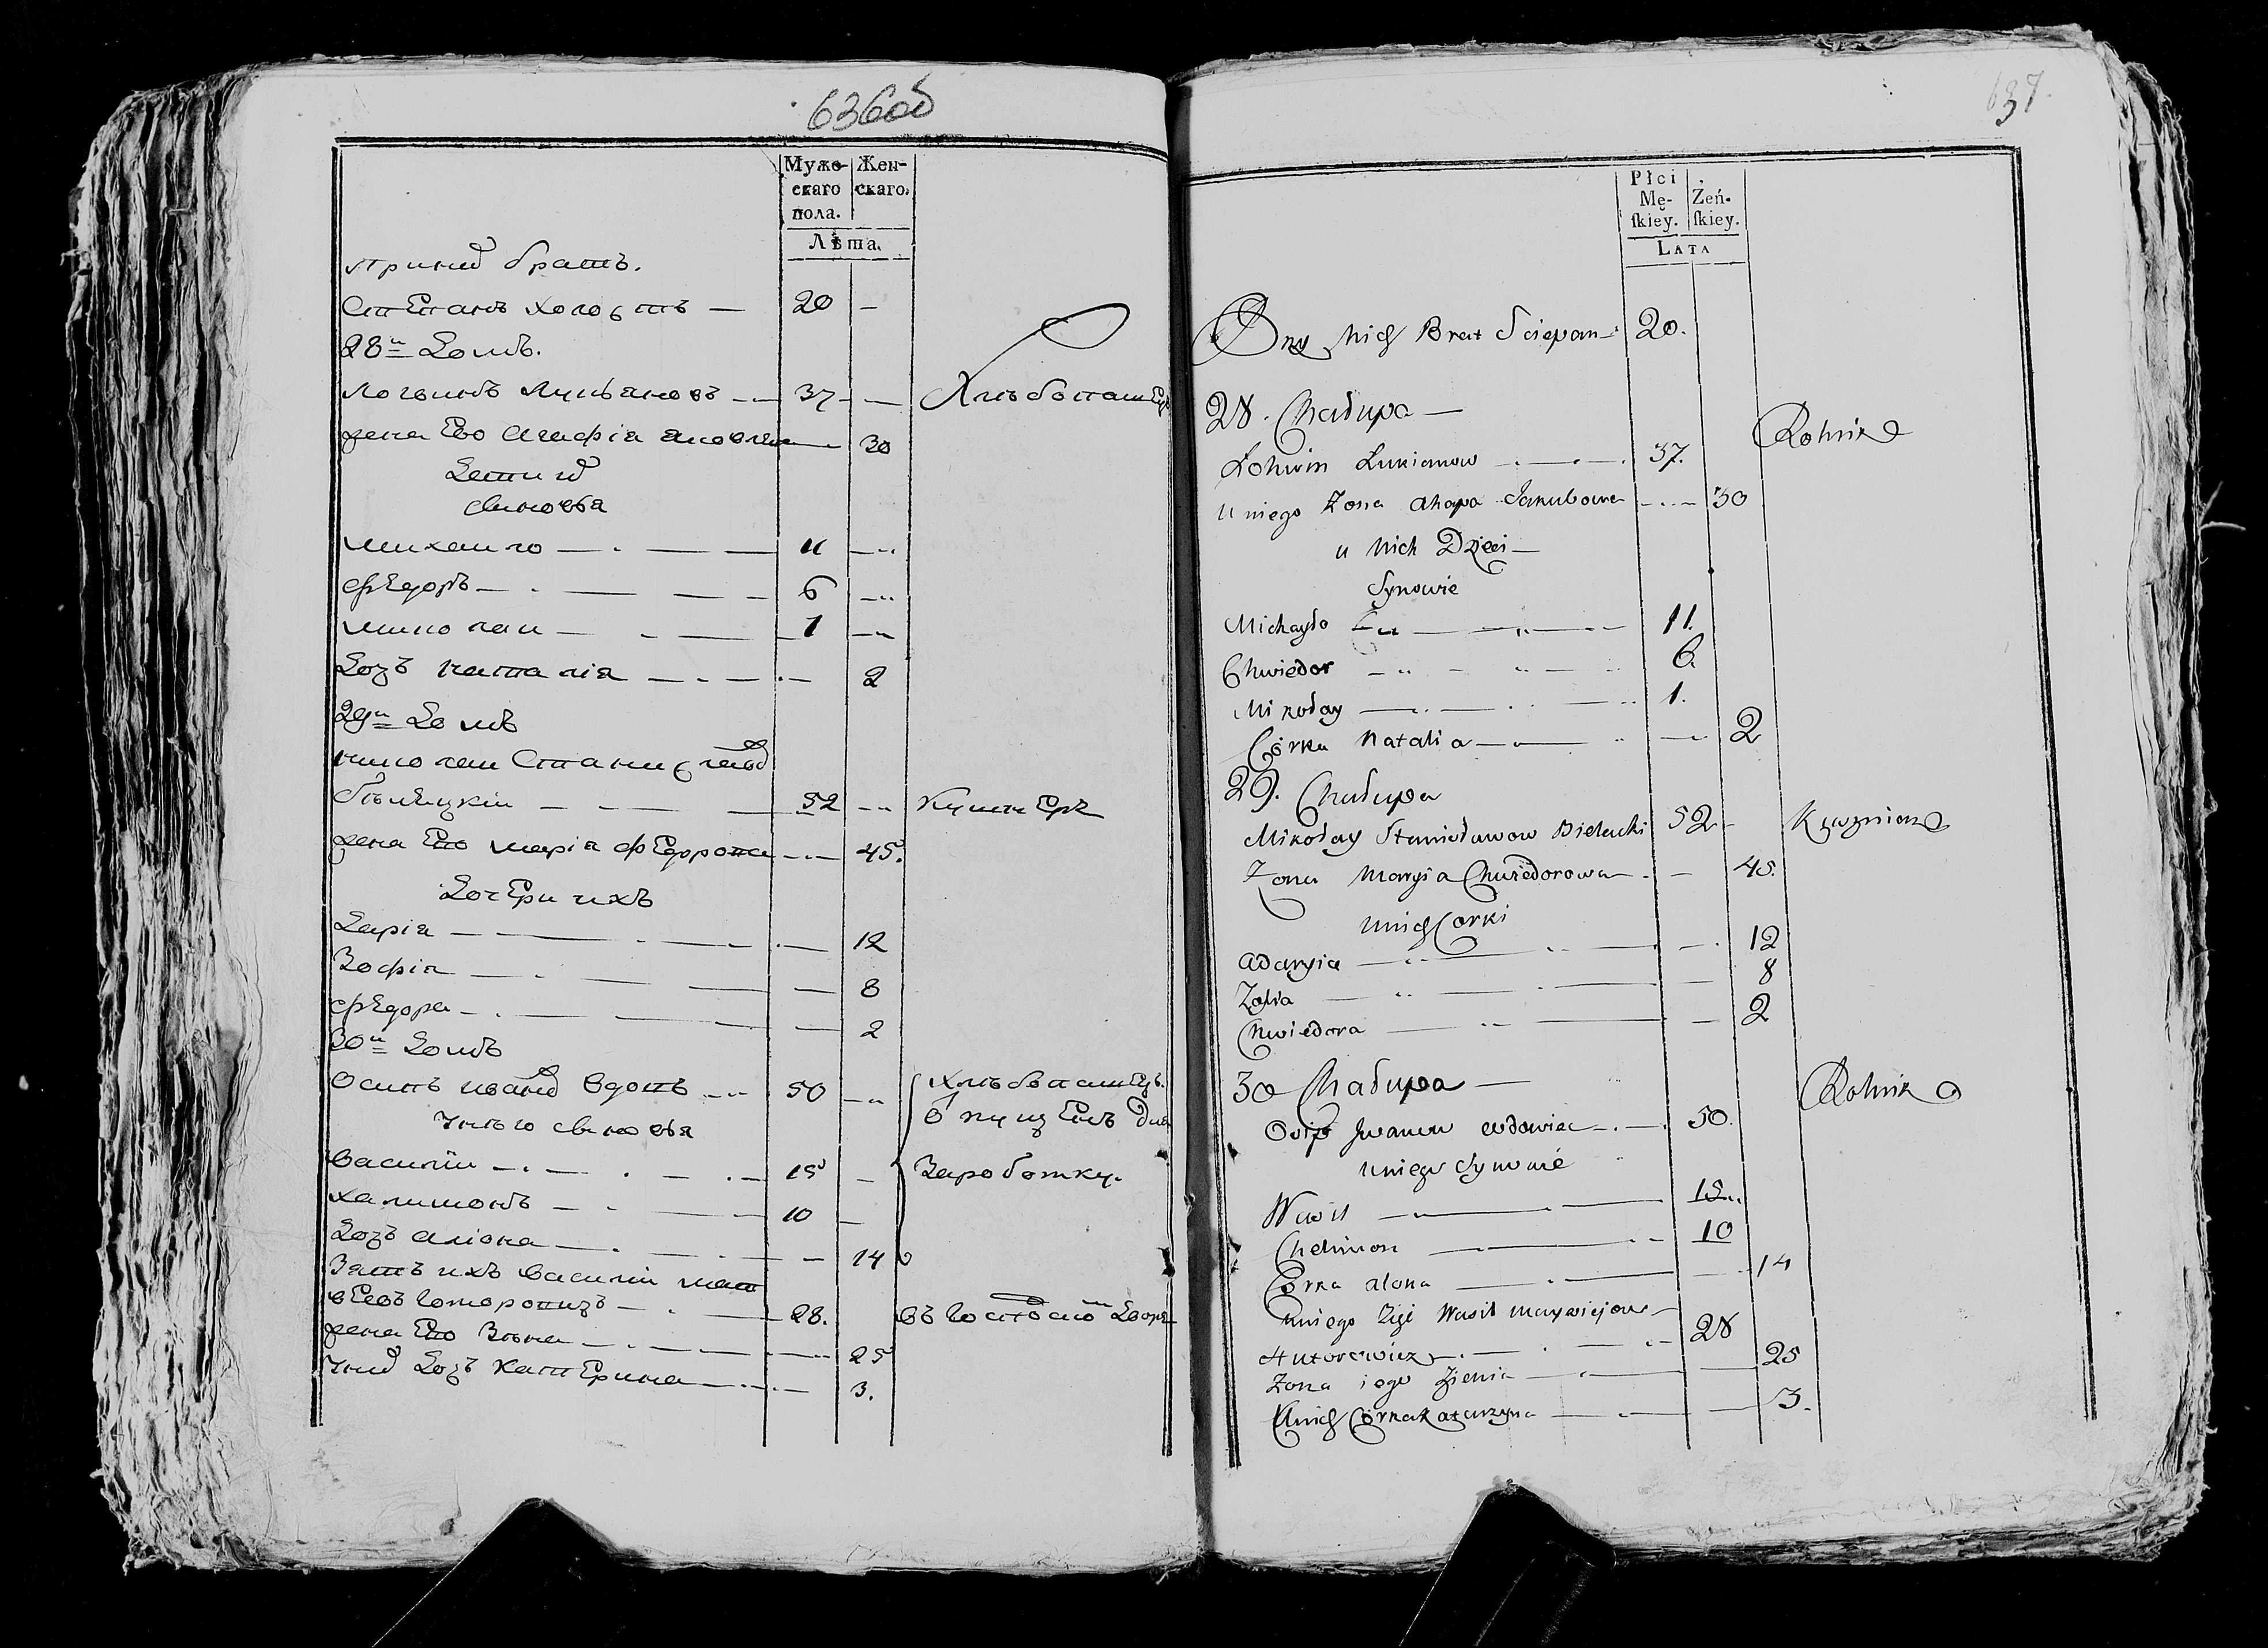 636об
Мужескаго пола.
Женскаго.
Лѣта.
при нихъ братъ.
Степанъ холостъ — 20 —
28й Домъ.
Логвинъ Лукьяновъ — 37 — Хлѣбопашецъ
жена Ево Агафія Яковлева — 30
Дети ихъ
сыновья
михаило — 11 —
федоръ — 6 —
николаи — 1 —
Дочь наталія — 2
29й Домъ
николаи Станиславовъ
бѣлецкіи — 52 — Кушнеръ
жена Ево марія федорова — 45.
Дочери ихъ
Дарія — 12
Зофія — 8
федора — 2
30й Домъ
Осипъ ивановъ вдовъ — 50 — хлѣбопашецъ.
у него сыновья
Василіи — 15 — Заработку.
халимонъ — 10 —
Дочь аліона — 14
Зять ихъ василіи мат
веевъ — 28.
жена Ево Зѣня — 25
у нихъ Дочь катерина — 3.
637.
Płci Męſkiey.
Żeńſkiey.
LATA
Przy Nich Brat Sciepan 20.
28. Chałupa —
Łohwin Łukianow — 37. Rolnik
u niego Żona Ahapa Jakubowa — 30
u Nich Dzieci —
Synowie
Michayło — 11.
Chwiedor — 6.
Mikołay — 1.
Córka Natalia — 2
29. Chałupa
Mikołay Stanisławow Bielecki 52 —
Żona Marysia Chwiedorowa — 45.
u nich Corki
Adarysia — 12
Zofia — 8
Chwiedora — 2
30 Chałupa — Rolnik
Osip Iwanow wdowiec — 50.
u niego Synowie
Wasil — 15
Chelimon — 10
Córka Alona — 14
u niego Zięć Wasil Matwiejow —
— 28
Żona iego Zienia — 25
u nich Córka Katarzyna — 3.